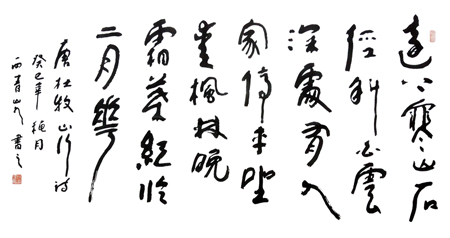 遠上寒山石
徑斜白雲
深處有人
家停車坐
愛楓林晚
霜葉紅於
二月華
唐杜牧山行詩
癸巳年 穐月
青山人書之